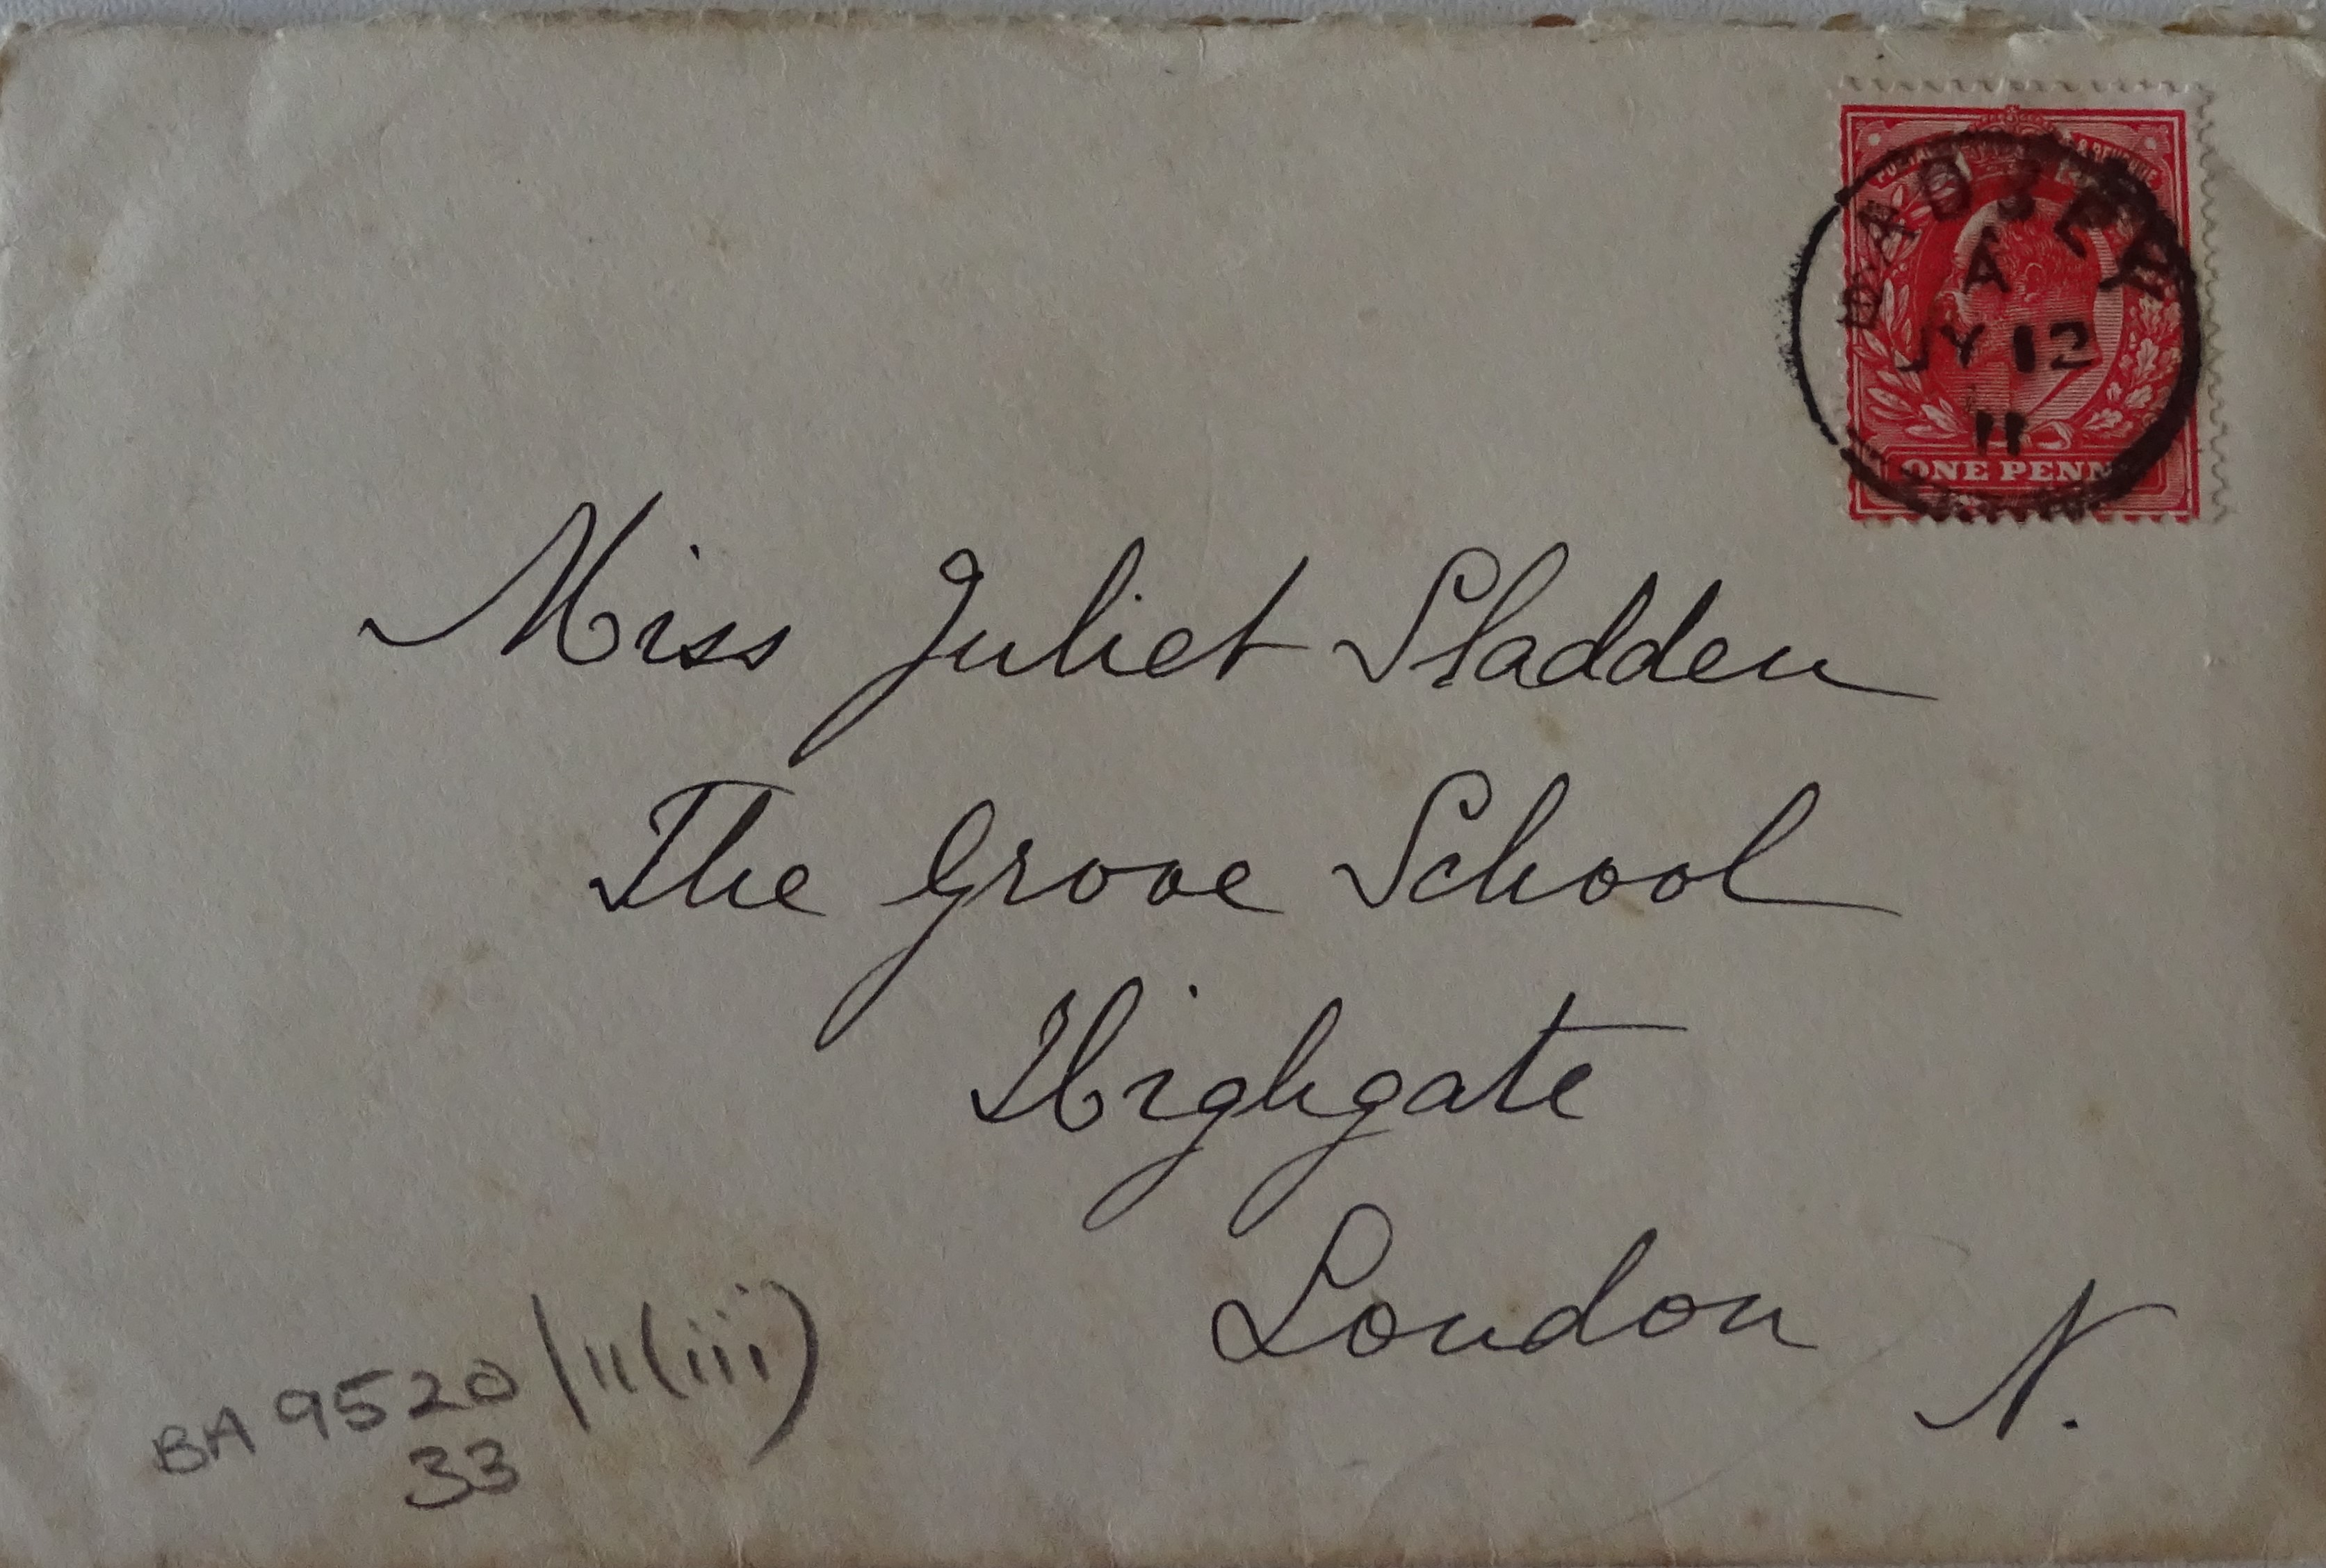 POSTAGE & REVENUE
BADSEY
A
JY 12
11
ONE PENNY
Miss Juliet Sladden
The Grove School
Highgate
London
N.
BA 9520/11(iii)
33